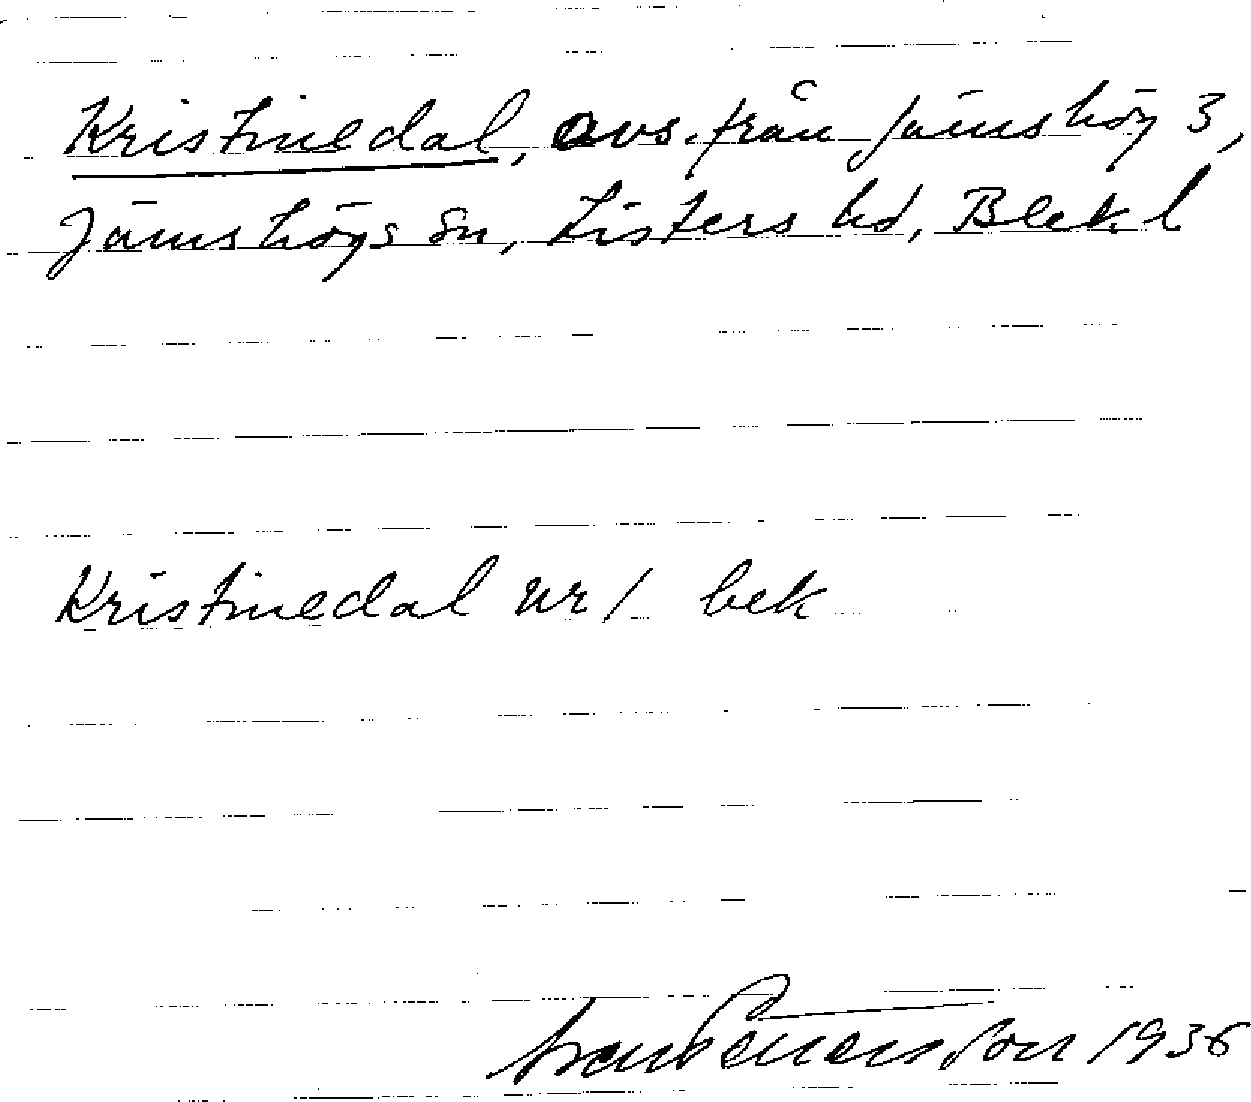 Kristinedal, avs. från Jämshög 3,
Jämshögs sn, Listers hd, Blek. l
Kristinedal nr 1 bek
1936